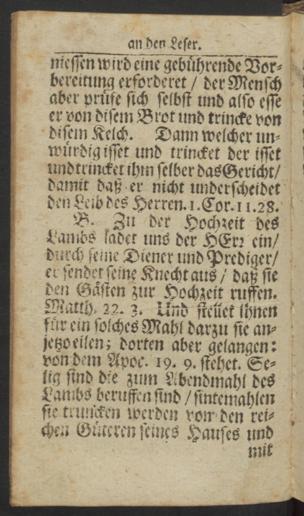 an den Leser.
niessen wird eine gebührende Vor-
bereitung erforderet / der Mensch
aber prüfe sich selbst und also esse
er von disem Brot und trincke von
disem Kelch. Dann welcher un-
würdig isset und trincket der isset
und trincket ihm selber das Gericht/
damit daß er nicht underscheidet
den Leib des Herren. 1. Cor. 11. 28.
B. Zu der Hochzeit des
Lambs ladet uns der HErr ein/
durch seine Diener und Prediger/
er sendet seine Knecht aus / daß sie
den Gästen zur Hochzeit ruffen.
Matth. 22. 3. Und stellet ihnen
für ein solches Mahl darzu sie an-
jetzo eilen; dorten aber gelangen:
von dem Apoc. 19. 9. stehet. Se-
lig sind die zum Abendmahl des
Lambs beruffen sind / sintemahlen
sie truncken werden von den rei-
chen Güteren seines Hauses und
mit